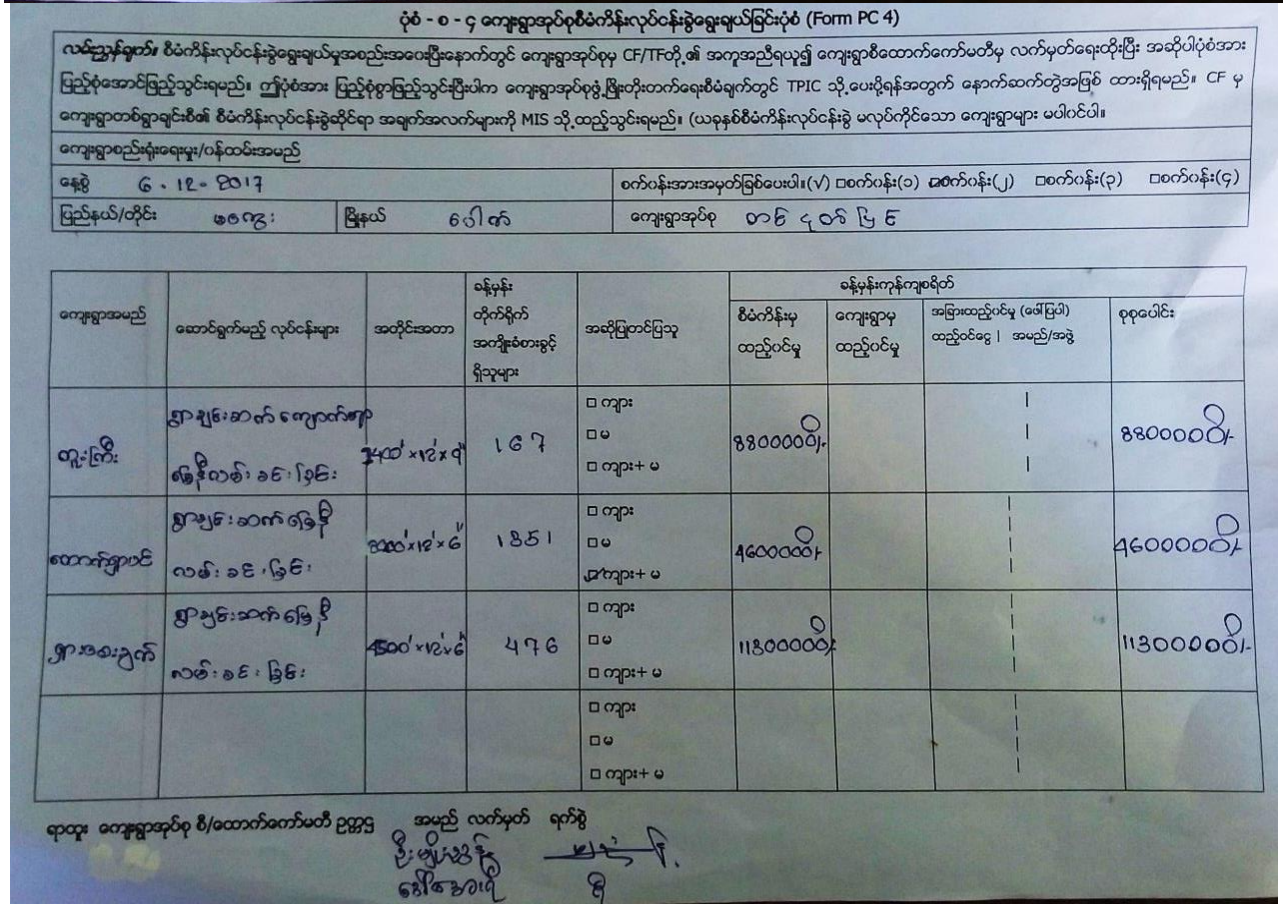 ပုံစံ - စ - ၄ ကျေးရွာအုပ်စုစီမံကိန်းလုပ်ငန်းခွဲရွေးချယ်ခြင်းပုံစံ (Form PC 4)
လမ်းညွှန်ချက်။ စီမံကိန်းလုပ်ငန်းခွဲရွေးချယ်မှုအစည်းအဝေးပြီးနောက်တွင် ကျေးရွာအုပ်စုမှ CF/TFတို့၏ အကူအညီရယူ၍ ကျေးရွာစီထောက်ကော်မတီမှ လက်မှတ်ရေးထိုးပြီး အဆိုပါပုံစံအား
ပြည့်စုံအောင်ဖြည့်သွင်းရမည်။ ဤပုံစံအား ပြည့်စုံစွာဖြည့်သွင်းပြီးပါက ကျေးရွာအုပ်စုဖွံ့ဖြိုးတိုးတက်ရေးစီမံချက်တွင် TPIC သို့ပေးပို့ရန်အတွက် နောက်ဆက်တွဲအဖြစ် ထားရှိရမည်။ CF မှ
ကျေးရွာတစ်ရွာချင်းစီ၏ စီမံကိန်းလုပ်ငန်းခွဲဆိုင်ရာ အချက်အလက်များကို MIS သို့ထည့်သွင်းရမည်။ (ယခုနှစ်စီမံကိန်းလုပ်ငန်းခွဲ မလုပ်ကိုင်သော ကျေးရွာများ မပါဝင်ပါ။
ကျေးရွာစည်းရုံးရေးမှူး/ဝန်ထမ်းအမည်
နေ့စွဲ 6 - 12 - 2017 စက်ဝန်းအားအမှတ်ခြစ်ပေးပါ။(√) □စက်ဝန်း(၁) □စက်ဝန်း(၂) □စက်ဝန်း(၃) □စက်ဝန်း(၄)
ပြည်နယ်/တိုင်း မကွေး မြို့နယ် ပေါက် ကျေးရွာအုပ်စု
ကျေးရွာအမည် ဆောင်ရွက်မည့် လုပ်ငန်းများ အတိုင်းအတာ ခန့်မှန်း တိုက်ရိုက် အကျိုးခံစားခွင့် ရှိသူများ အဆိုပြုတင်ပြသူ ခန့်မှန်းကုန်ကျစရိတ်
စီမံကိန်းမှ ထည့်ဝင်မှု ကျေးရွာမှ ထည့်ဝင်မှု အခြားထည့်ဝင်မှု (ဖော်ပြပါ) ထည့်ဝင်ငွေ | အမည်/အဖွဲ့ စုစုပေါင်း
တူးကြီး ရွာချင်းဆက် ကျောက်ချော မြေနီလမ်းခင်းခြင်း 167 □ ကျား □ မ □ ကျား+ မ 8800000/- 8800000/-
ရွာချင်းဆက်မြေနီ လမ်းခင်းခြင်း 3000'×12'×6" 1351 □ ကျား □ မ □ ကျား+ မ 4600000/- 4600000/-
ရွာချင်းဆက်မြေနီ လမ်းခင်းခြင်း 4500'×12'×6" 476 □ ကျား □ မ □ ကျား+ မ 11300000/- 11300000/-
□ ကျား □ မ □ ကျား+ မ
ရာထူး ကျေးရွာအုပ်စု စီ/ထောက်ကော်မတီ ဥက္ကဋ္ဌ အမည် လက်မှတ် ရက်စွဲ